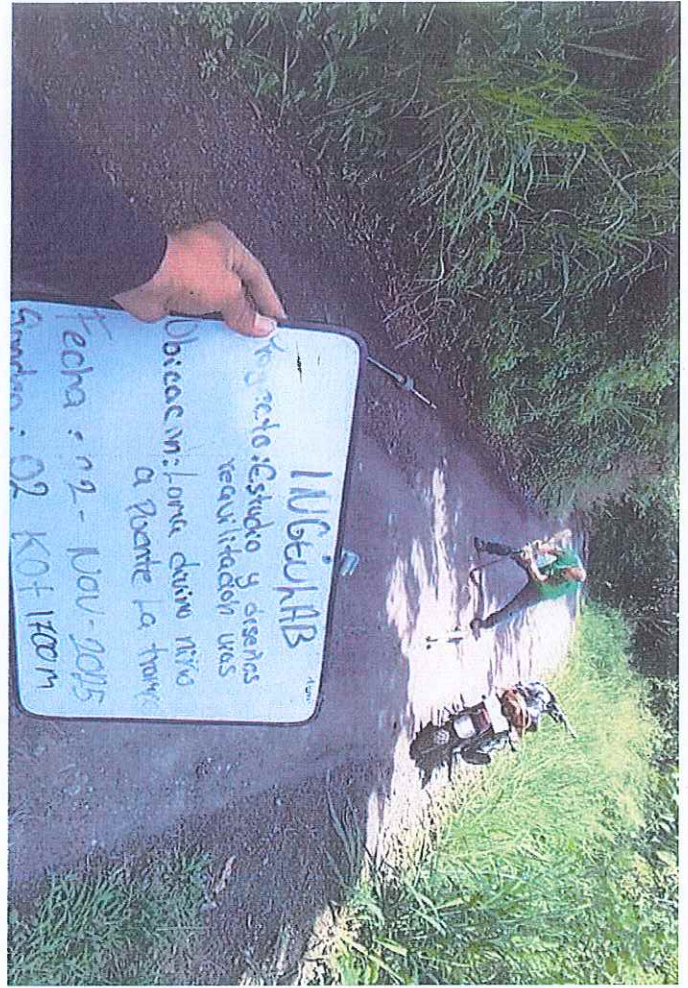 INGEULAB
Proyecto: Estudio y diseños
requilitacion vias
Ubicacin: Loma divino niño
a Puente La
Fecha: 02 - Nov - 2025
Sondeo: 02 K0+1700m